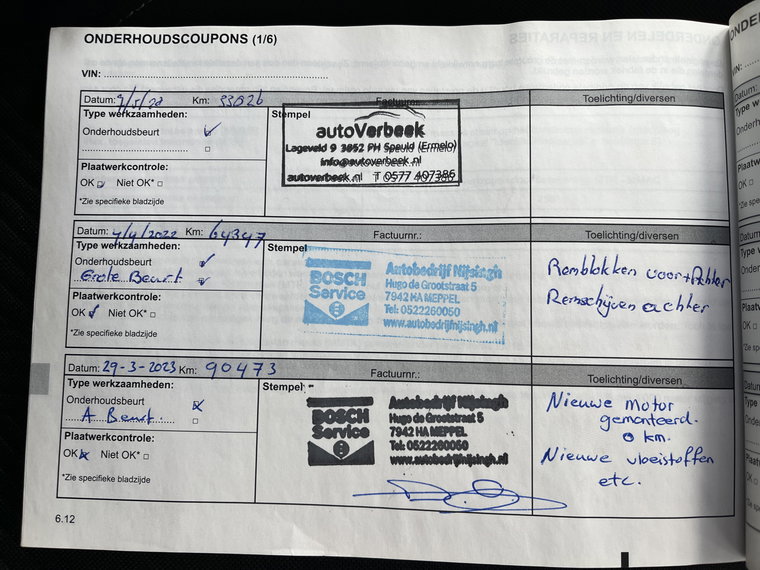 ONDERHOUDSCOUPONS (1/6)
VIN:
Datum: Km: 33026 Factuurnr.: Toelichting/diversen
Type werkzaamheden:
Onderhoudsbeurt
Plaatwerkcontrole:
OK Niet OK*
*Zie specifieke bladzijde
Stempel
autoVerbeek
Lageveld 9 3852 PH Speuld (Ermelo)
info@autoverbeek.nl
autoverbeek.nl T 0577 407386
Datum: 4/4/2022 Km: 64347 Factuurnr.: Toelichting/diversen
Type werkzaamheden:
Onderhoudsbeurt
Grote Beurt
Plaatwerkcontrole:
OK Niet OK*
*Zie specifieke bladzijde
Stempel
BOSCH
Service
Autobedrijf Nijsingh
Hugo de Grootstraat 5
7942 HA MEPPEL
Tel: 0522260050
www.autobedrijfnijsingh.nl
Remblokken voor + Achter
Remschijven achter
Datum: 29-3-2023 Km: 90473 Factuurnr.: Toelichting/diversen
Type werkzaamheden:
Onderhoudsbeurt
A Beurt.
Plaatwerkcontrole:
OK Niet OK*
*Zie specifieke bladzijde
Stempel
BOSCH
Service
Autobedrijf Nijsingh
Hugo de Grootstraat 5
7942 HA MEPPEL
Tel: 0522260050
www.autobedrijfnijsingh.nl
Nieuwe motor
gemonteerd.
0 km.
Nieuwe vloeistoffen
etc.
6.12